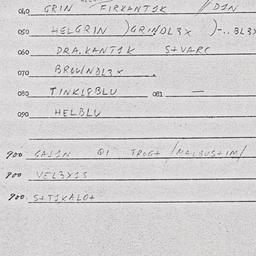 040 GRIN FIRKANTIK //DIN
050 HELGRIN )GRINDL3X )-.. BL3X
060 DRA.KANTIK S+VARC
070 BROWNDL3X
080 TINKL8BLU 081 —
090 HELBLU
900 GASIN QI TROG+ /MALBUS+IM/
900 VEL3XIS
900 S+TIKALO+